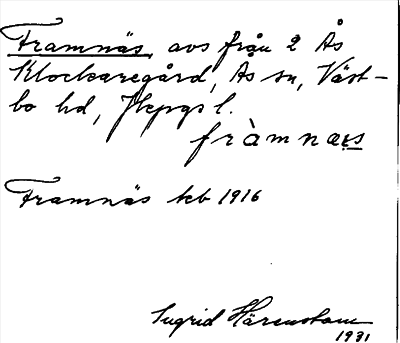 Framnäs, avs från 2 Ås
Klockaregård, Ås sn, Väst-
bo hd, Jkpgs l.
fràmnæs
Framnäs kb 1916
Ingrid Härenstam
1931